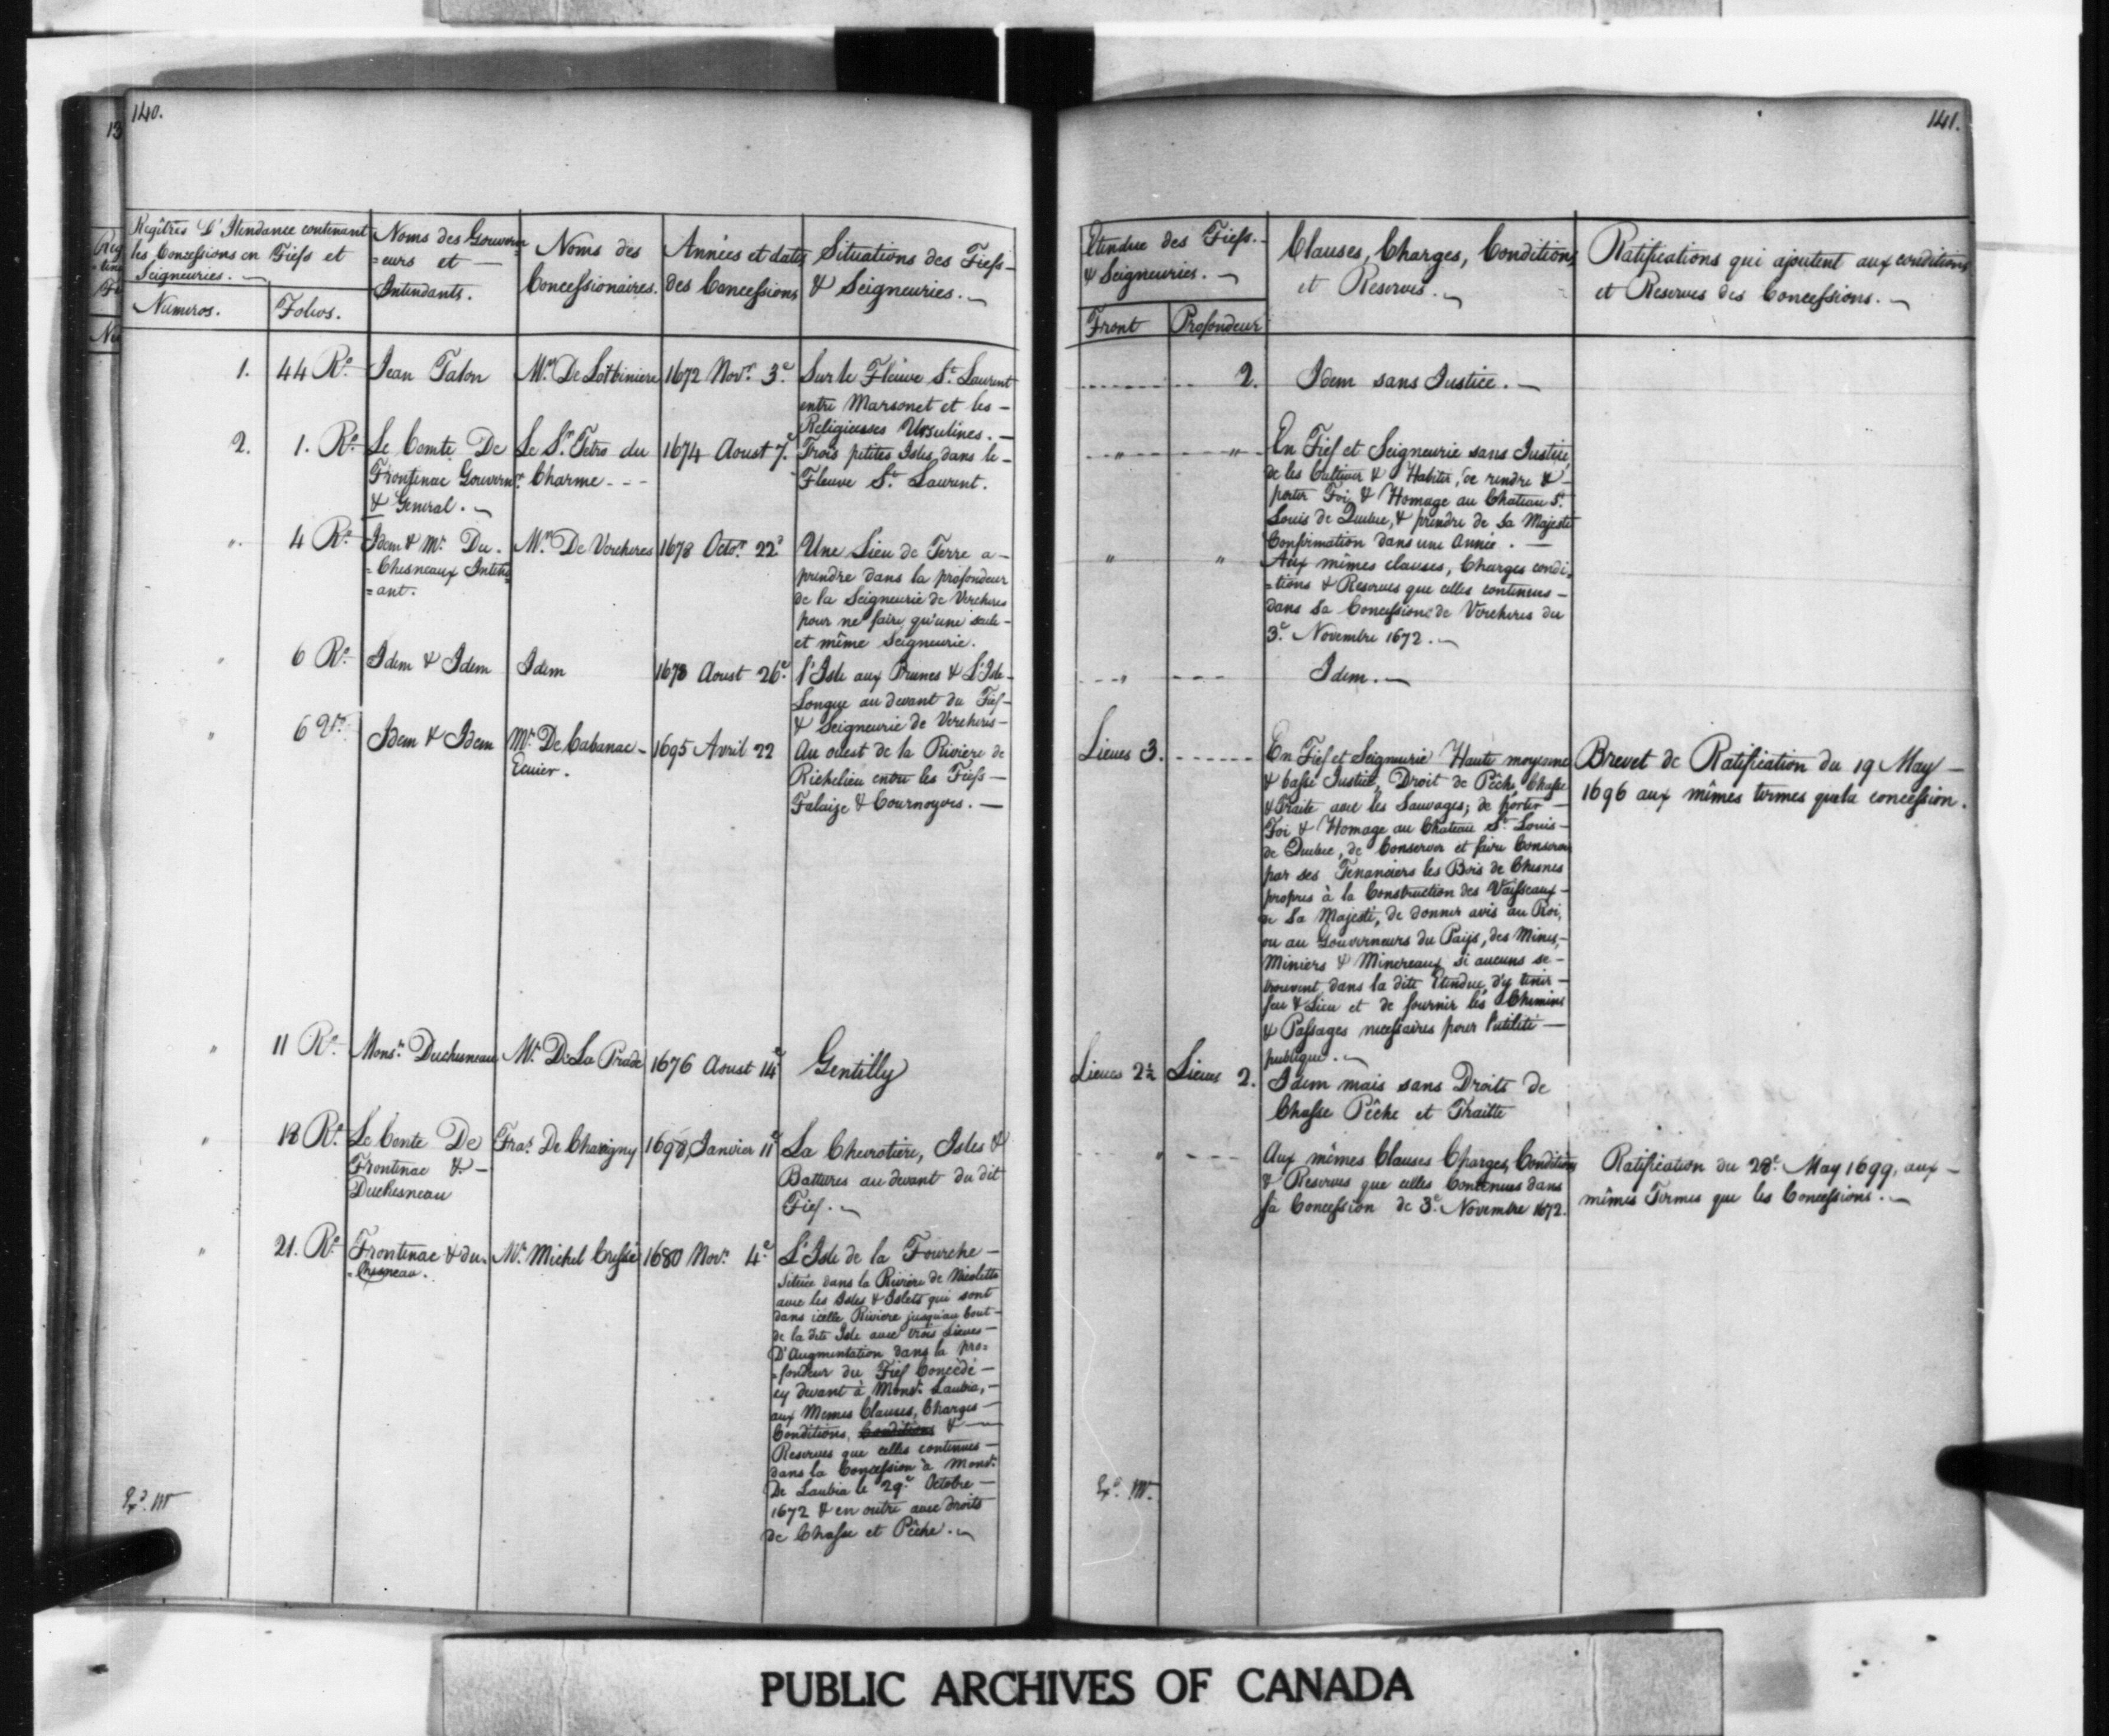 140.
Regîtres D'Intendance contenant
les Concessions en Fiefs et
Seigneuries.
Numeros.
Folios.
Noms des Gouvern
=eurs et
Intendants.
Noms des
Concessionaires.
Années et dates
des Concessions
Situations des Fiefs
& Seigneuries.
1.
44 Ro.
Jean Talon
Mr. De Lotbiniere
1672 Novr. 3e.
Sur le Fleuve St. Laurent
entre Marsonet et les
Religieuses Ursulines.
2.
1. Ro.
Le Comte De
Frontenac Gouvernr.
& General.
Le Sr. Petro du
Charme
1674 Aoust 7e.
Trois petites Isles dans le
Fleuve St. Laurent.
"
4 Ro.
Idem & Mr. Du
=Chesneaux Intend
=ant.
Mr. De Vercheres
1678 Octr. 22e
Une Lieu de Terre a
prendre dans la profondeur
de la Seigneurie de Vercheres
pour ne faire qu'une seule
et même Seigneurie.
"
6 Ro.
Idem & Idem
Idem
1678 Aoust 26e.
l'Isle aux Prunes & L'Isle
Longue au devant du Fief
& Seigneurie de Vercheres
"
6 Vo.
Idem & Idem
Mr. De Cabanac
Ecuier.
1695 Avril 22
Au ouest de la Riviere de
Richelieu entre les Fiefs
Falaize & Cournoyers.
"
11 Ro.
Monsr. Duchesneau
Mr. De La Prade
1676 Aoust 14e
Gentilly
"
12 Ro.
Le Conte De
Frontenac &
Duchesneau
Fras. De Chavigny
1698, Janvier 11e
La Chevrotiere, Isles &
Battures au devant du dit
Fief.
"
21. Ro.
Frontenac & du
=Chesneau.
Mr. Michel Cressé
1680 Novr. 4e.
L'Isle de la Fourche
Située dans la Riviere de Nicolette
avec les Isles & Islets qui sont
dans icelle Riviere jusqu'au bout
de la dite Isle avec trois Lieues
D'Augmentation dans la pro=
=fondeur du Fief Concédé
cy devant à Monsr. Laubia,
aux Memes Clauses, Charges
Conditions, Conditions &
Reserves que celles contenues
dans la Concession à Monsr.
De Laubia le 29e. Octobre
1672 & en outre avec droits
de Chasse et Pêche.
Exd. M
141.
Etendue des Fiefs
& Seigneuries.
Front
Profondeur
Clauses, Charges, Conditions,
et Reserves.
Ratifications qui ajoutent aux conditions
et Reserves des Concessions.
2.
Idem sans Justice.
"
"
En Fief et Seigneurie sans Justice,
de les Cultiver & Habiter, de rendre &
porter Foi & Homage au Chateau St.
Louis de Quebec, & prendre de Sa Majesté
Confirmation dans une Année.
"
"
Aux mêmes clauses, Charges condi
=tions & Reserves que celles contenues
dans Sa Concession de Vercheres du
3e. Novembre 1672.
"
Idem.
Lieues 3.
En Fief et Seigneurie Haute moyenne
& basse Justice, Droit de Pêche, Chasse
& Traite avec les Sauvages; de porter
Foi & Homage au Chateau St. Louis
de Quebec, de Conserver et faire Conserver
par ses Tenanciers les Bois de Chesnes
propres à la Construction des Vaisseaux
de Sa Majesté, de donner avis au Roi,
ou au Gouverneurs du Païs, des Mines,
Miniers & Minereaux si aucuns se
trouvent dans la dite Etendue, d'y tenir
feu & Lieu et de fournir les Chemins
& Passages necessaires pour l'utilité
publique.
Brevet de Ratification du 19 May
1696 aux mêmes termes que la concession.
Lieues 2½
Lieues 2.
Idem mais sans Droits de
Chasse Pêche et Traitte
"
Aux mêmes Clauses Charges, Conditions
& Reserves que celles Contenues dans
sa Concession de 3e. Novembre 1672.
Ratification du 28e. May 1699, aux
mêmes Termes que les Concessions.
Exd. M.
PUBLIC ARCHIVES OF CANADA